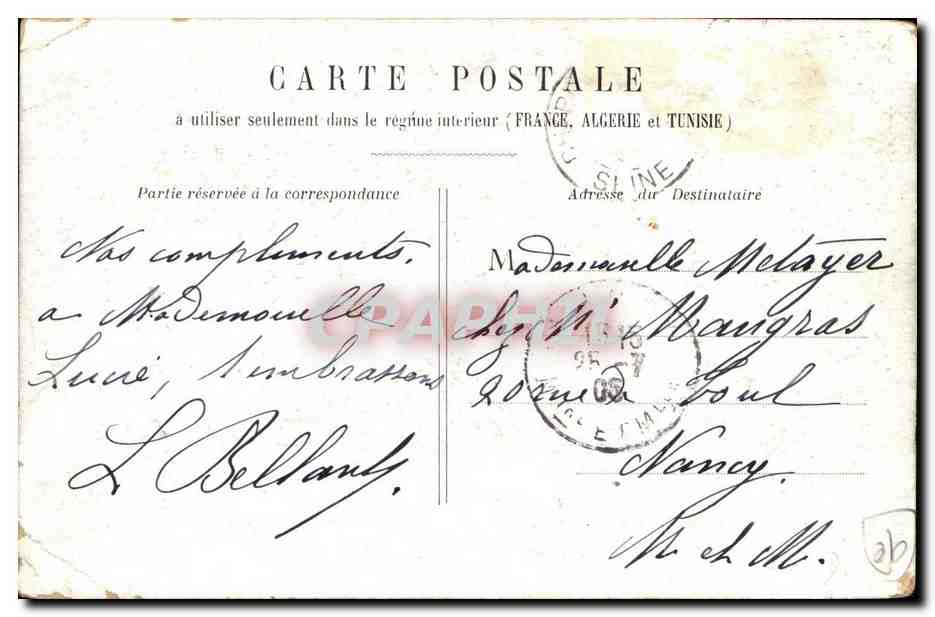 CARTE POSTALE
à utiliser seulement dans le régime intérieur (FRANCE, ALGERIE et TUNISIE)
Partie réservée à la correspondance
Nos compliments.
a Mademoiselle
Lucie, t'embrassons
L Bellanty.
Adresse du Destinataire
Mademoiselle Metayer
chez Mr Mangras
20 rue de Toul
Nancy.
M et M.
SEINE
15 15
25 7
05
CPAPHIL